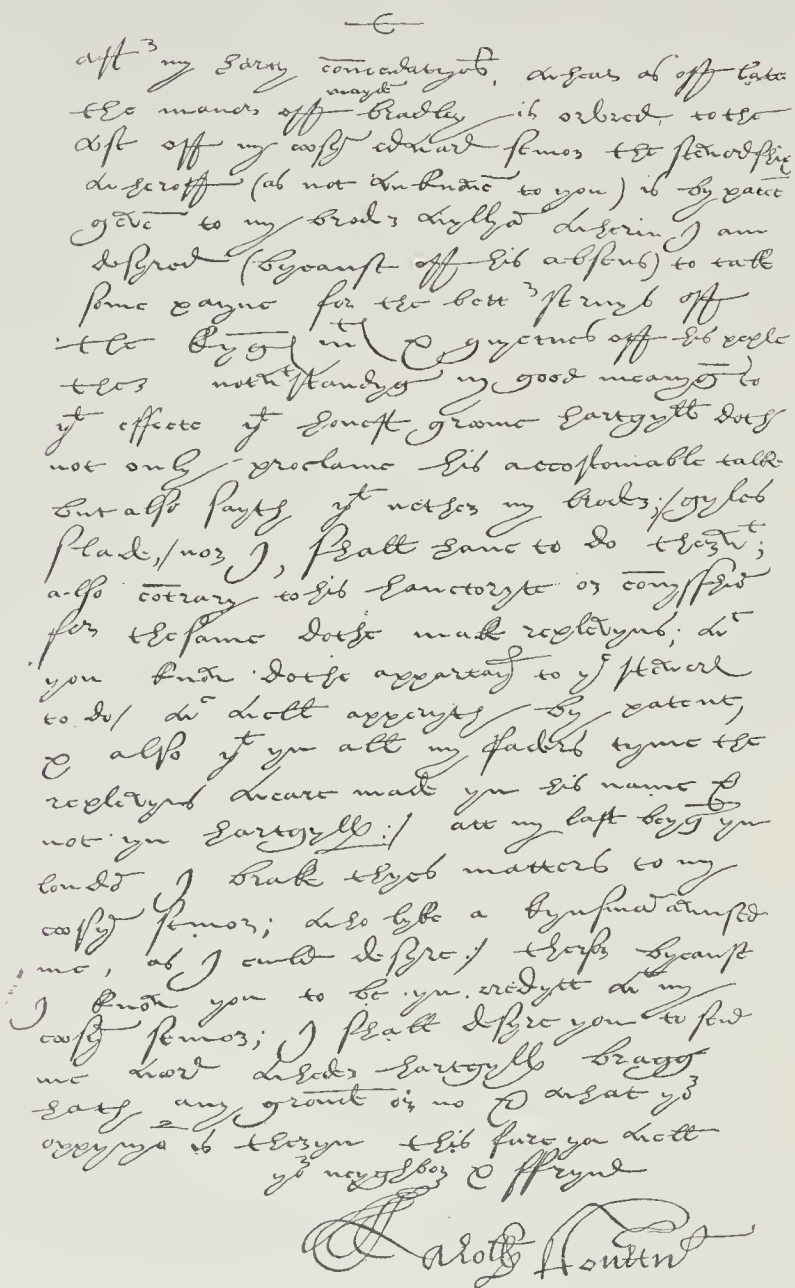 aft my harty comendatyos, wheras as off late
the maner off mayde bradley is ordred to the
use off my cosyn edward semor the stewerdshipe
wheroff (as not unknowe to you) is by patet
geve to my broder wyllya wherin I am
desyred (bycause off his absens) to take
some payne for the bett servys off
the kyges mt & quyetnes off his peple
ther notwtstandyg my good meanyg to
yt effecte yt honest grome hartgyll doth
not only proclame his accostomable talke
but also sayth yt nether my broder;/gyles
slade,/nor I, shall have to do therwt;
also cotrary to his hauctoryte or comysshio
for thesame dothe make replevyns; wc
you know dothe appartayn to ye stewerd
to do/ wc well apperyth by patent,
& also yt yn all my faders tyme the
replevyns weare made yn his name &
not yn hartgylls:/ att my last beyg yn
londo I brake thyes matters to my
cosyn semor; who lyke a kynsma avused
me, as I could desyre:/ therfor bycause
I know you to be yn credytt wt my
cosyn semor; I shall desyre you to send
me word wheder hartgylls bragg
hath any grownd or no & what yor
oppynyo is theryn this fare you well
yor neyghbor & ffrynd